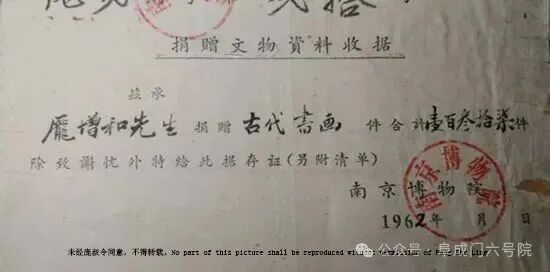 捐贈文物資料收据
兹承
龐增和先生捐贈古代書画件合計壹百叁拾柒件
除致謝忱外特给此据存証(另附清单)
南京博物院
南京博物院
1962年 月 日
未经庞叔令同意，不得转载。No part of this picture shall be reproduced
公众号 · 阜成门六号院